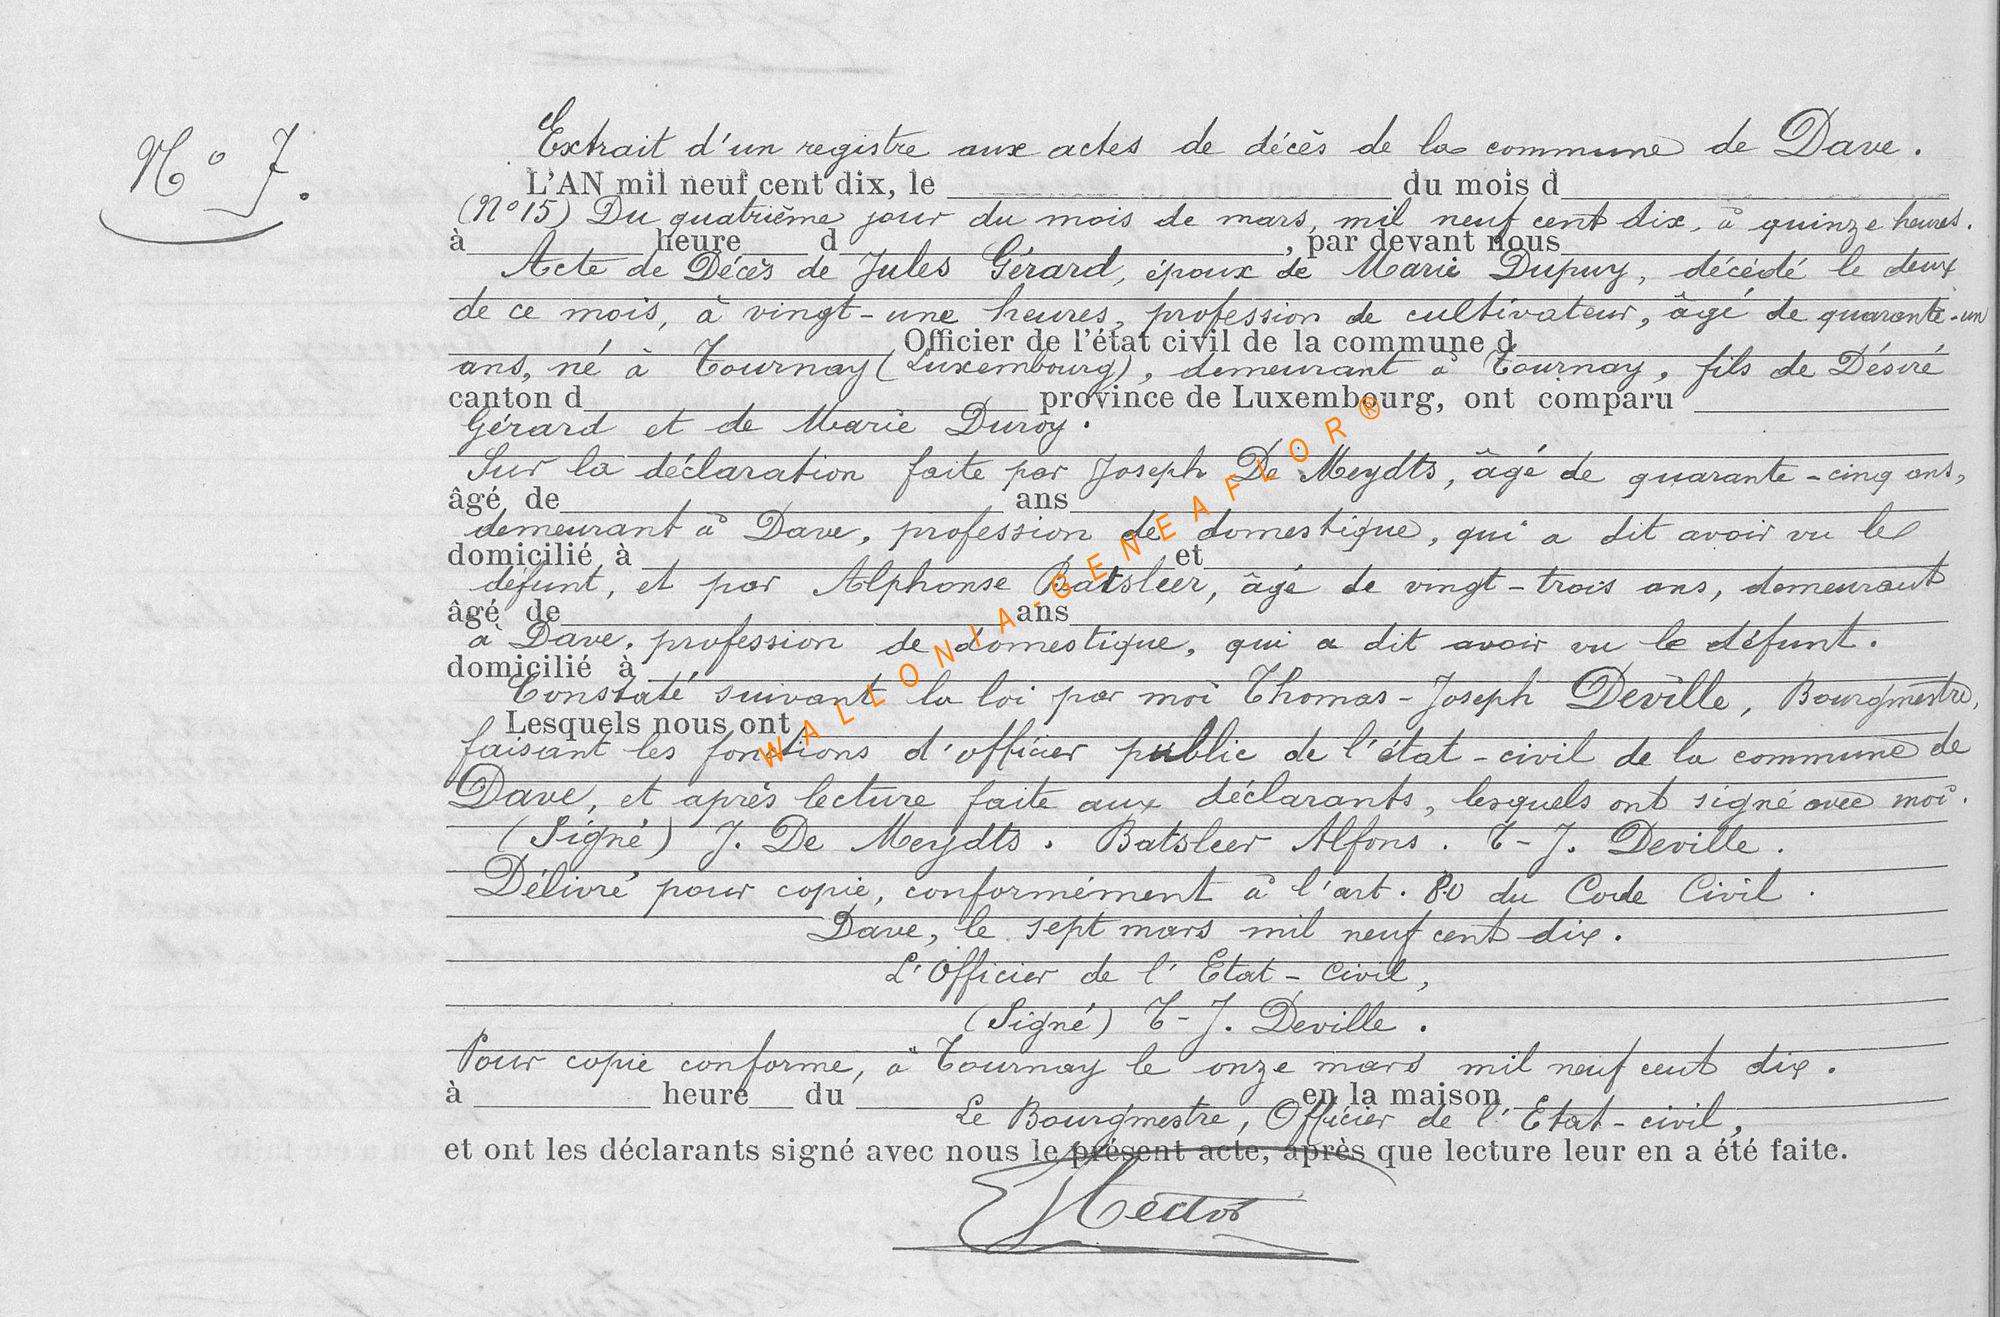 N° 7.
Extrait d'un registre aux actes de décès de la commune de Dave.
L'AN mil neuf cent dix, le du mois d
(N° 15) Du quatrième jour du mois de mars, mil neuf cent dix, à quinze heures.
à heure d , par devant nous
Acte de Décès de Jules Gérard, époux de Marie Dupuy, décédé le deux
de ce mois, à vingt-une heures, profession de cultivateur, âgé de quarante-un
Officier de l'état civil de la commune d
ans, né à Tournay (Luxembourg), demeurant à Tournay, fils de Désiré
canton d province de Luxembourg, ont comparu
Gérard et de Marie Duroy.
Sur la déclaration faite par Joseph De Meydts, âgé de quarante-cinq ans,
âgé de ans
demeurant à Dave, profession de domestique, qui a dit avoir vu le
domicilié à et
défunt, et par Alphonse Batsleer, âgé de vingt-trois ans, demeurant
âgé de ans
à Dave, profession de domestique, qui a dit avoir vu le défunt.
domicilié à
Constaté suivant la loi par moi Thomas-Joseph Deville, Bourgmestre,
Lesquels nous ont
faisant les fonctions d'officier public de l'état-civil de la commune de
Dave, et après lecture faite aux déclarants, lesquels ont signé avec moi.
(Signé) J. De Meydts. Batsleer Alfons. T-J. Deville.
Délivré pour copie, conformément à l'art. 80 du Code Civil.
Dave, le sept mars mil neuf cent dix.
L'Officier de l'Etat-Civil,
(Signé) T-J. Deville.
Pour copie conforme, à Tournay le onze mars mil neuf cent dix.
à heure du en la maison
Le Bourgmestre, Officier de l'Etat-civil,
et ont les déclarants signé avec nous le présent acte, après que lecture leur en a été faite.
WALLONIA-GENEAFLOR®